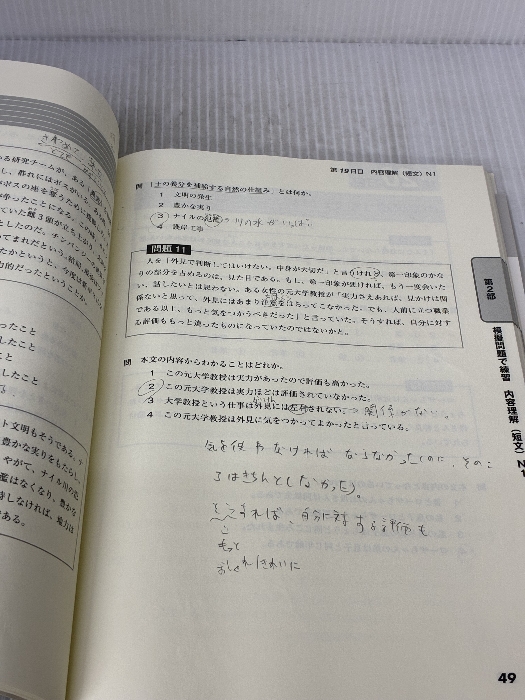 る研究チームが、ある
し、群れにはボスが
ボスの座を奪うために
争ったことになる。
ていた雌3頭が立ち上がり
としたのだ。チンパンジー
てまれだという。結局
たかというと、今度は
力的だったということか。
ったこと
したこと
こと
したこと
ト文明もそうである。ナ
豊かな実りをもたらし、
やがて、ナイル川の氾
濫はなくなり、豊かな
時しなければ、地力は
である。
第19日目 内容理解（短文）N1
問 「土の養分を補給する自然の仕組み」とは何か。
1 文明の発生
2 豊かな実り
3 ナイルの氾濫 川の水が
4 護岸工事
問題 11
人を「外見で判断してはいけない。中身が大切だ」と言うけれど、第一印象のかな
りの部分を占めるのは、見た目である。もし、第一印象が悪ければ、もう一度会いた
い、話したいとは思わない。ある女性の元大学教授が「実力さえあれば、見かけは関
係ないと思って、外見にはあまり注意をはらってこなかった。でも、人前に立つ職業
である以上、もっと気をつかうべきだった」と言っていた。そうすれば、自分に対す
る評価ももっと違ったものになっていたのではないかと。
問 本文の内容からわかることはどれか。
1 この元大学教授は実力があったので評価も高かった。
2 この元大学教授は実力ほどは評価されていなかった。
3 大学教授という仕事は外見には左右されない。⇒関係がない。
4 この元大学教授は外見に気をつかってよかったと言っている。
気を使わなければならなかったのに、そのこ
ろはきちんとしなかった。
そうすれば、自分に対する評価も
もっと
おしゃれ きれいに
第2部
模擬問題で練習 内容理解（短文）N1
49